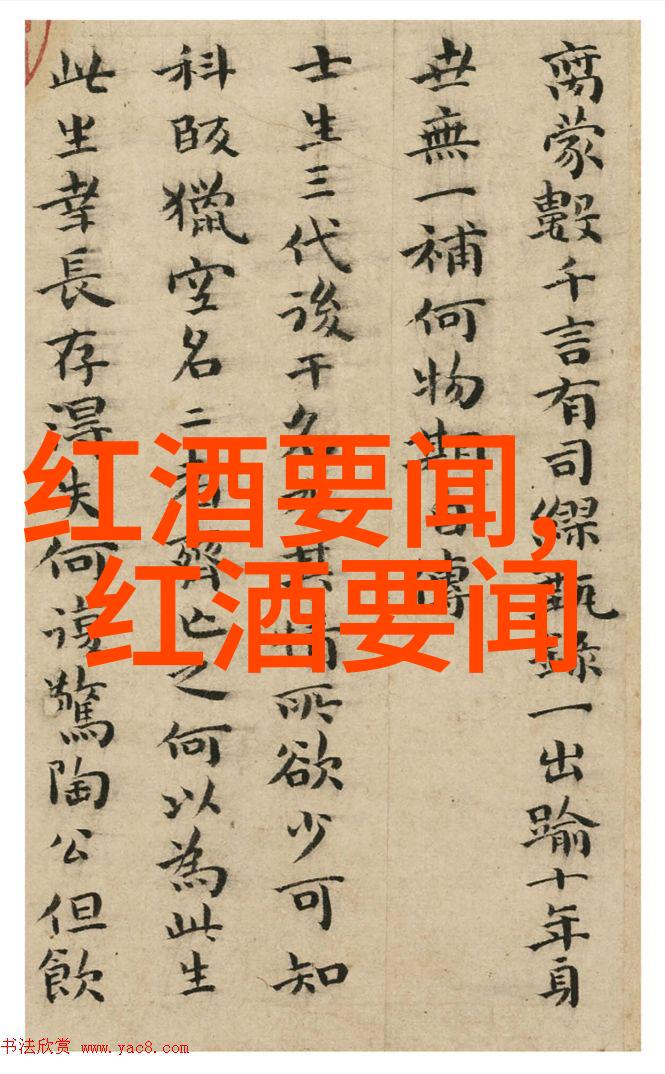 离蒙數千言有司繆甄錄一出踰十年身
世無一補何物期自傳
士生三代後千名
所欲少可知
科版獵空名二者齊亡之何以為此生
此坐幸長存得失何復驚陶公但飲
红酒要闻,
红酒要闻
书法欣赏 www.yac8.com